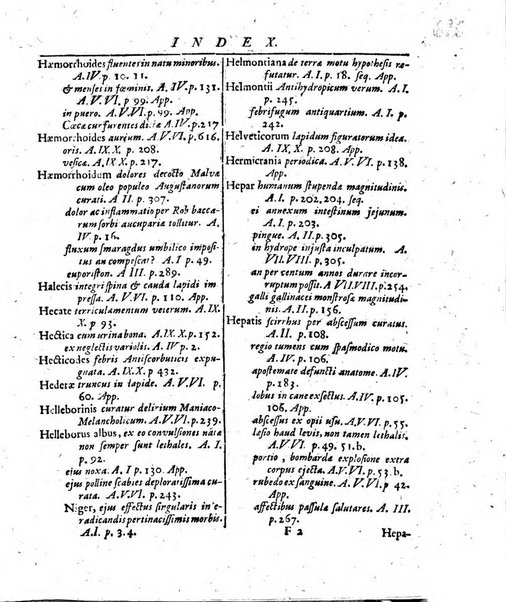 INDEX.
Hæmorrhoides fluentes in natu minoribus.
A. IV. p. 10. 11.
& menses in fæminis. A. IV. p. 131.
A. V. VI. p 99. App.
in puero. A. V. VI. p. 99. App.
Cæcæ cur furentes dictæ A. IV. p. 217
Hæmorrhoides aurium. A. V. VI. p. 616.
oris. A. IX. X. p. 208.
vesicæ. A. IX. X. p. 217.
Hæmorrhoidum dolores decocto Malvæ
cum oleo populeo Augustanorum
curati. A. II. p. 307.
dolor ac inflammatio per Rob bacca-
rum sambuci aucupariæ tollitur. A.
IV. p. 16.
fluxum smaragdus umbilico imposi-
tus an compescat? A. I p. 49.
euporiston. A III. p. 289.
Halecis integri spina & cauda lapidi im
pressa. A. V. VI. p. 110. App.
Hecate terriculamentum veterum. A. IX.
X. p 93.
Hectica cum urina bona. A. IX. X. p. 152.
ex neglectis variolis. A. IV. p. 2.
Hecticodes febris Antiscorbuticis expu-
gnata. A. IX. X. p 432.
Hederæ truncus in lapide. A. V. VI. p.
60. App.
Helleborinis curatur delirium Maniaco-
Melancholicum. A. V. VI. p. 239.
Helleborus albus, ex eo convulsiones natæ
non semper sunt lethales. A. I.
p. 92.
ejus noxa. A. I p. 130. App.
ejus polline scabies deploratissima cu-
rata. A. V. VI. p. 243.
Niger, ejus effectus singularis in e-
radicandis pertinacissimis morbis.
A. I. p. 3. 4.
Helmontiana de terræ motu hypothesis re-
futatur. A. I. p. 18. seq. App.
Helmontii Antihydropicum verum. A. I.
p. 245.
febrifugum antiquartium. A. I.
p. 242.
Helveticorum lapidum figuratorum idea.
A. IX. X. p. 208. App.
Hermicrania periodica. A. V. VI. p. 138.
App.
Hepar humanum stupendæ magnitudinis.
A. I. p. 202, 204. seq.
ei annexum intestinum jejunum.
A. I. p. 203.
pingue. A. II. p. 305.
in hydrope injusta inculpatum. A.
VII. VIII. p. 305.
an per centum annos durare incor-
ruptum possit. A VII. VIII. p. 254.
galli gallinacei monstrosæ magnitudi-
nis. A. II. p. 156.
Hepatis scirrhus per abscessum curatus.
A. II. p. 108.
regio tumens cum spasmodico motu.
A. IV. p. 106.
apostemate defuncti anatome. A. IV.
p. 183.
lobus in cane exsectus. A. IV. p. 105.
106. App.
abscessus ex opii usu. A. V. VI. p. 55.
læsio haud levis, non tamen lethalis.
A. V. VI. p. 49. 51. b.
portio, bombarda explosione extra
corpus ejecta. A. V. VI. p. 53. b.
rubedo exsanguine. A. V. VI. p. 42.
App.
affectibus passulæ salutares. A. III.
p. 267.
F 2
Hepa-